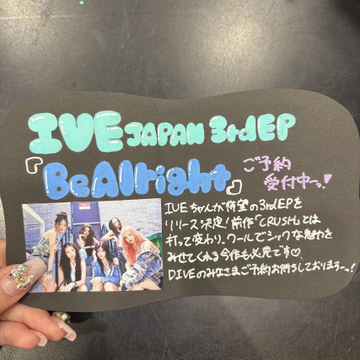 IVE JAPAN 3rd EP
『Be Alright』
ご予約
受付中っ!♥
IVEちゃんが待望の3rdEPを
リリース決定!前作「CRUSH」とは
打って変わり、クールでシックな魅力を
みせてくれる今作も必見です♡
DIVEのみなさまご予約お待ちしておりますーっ!